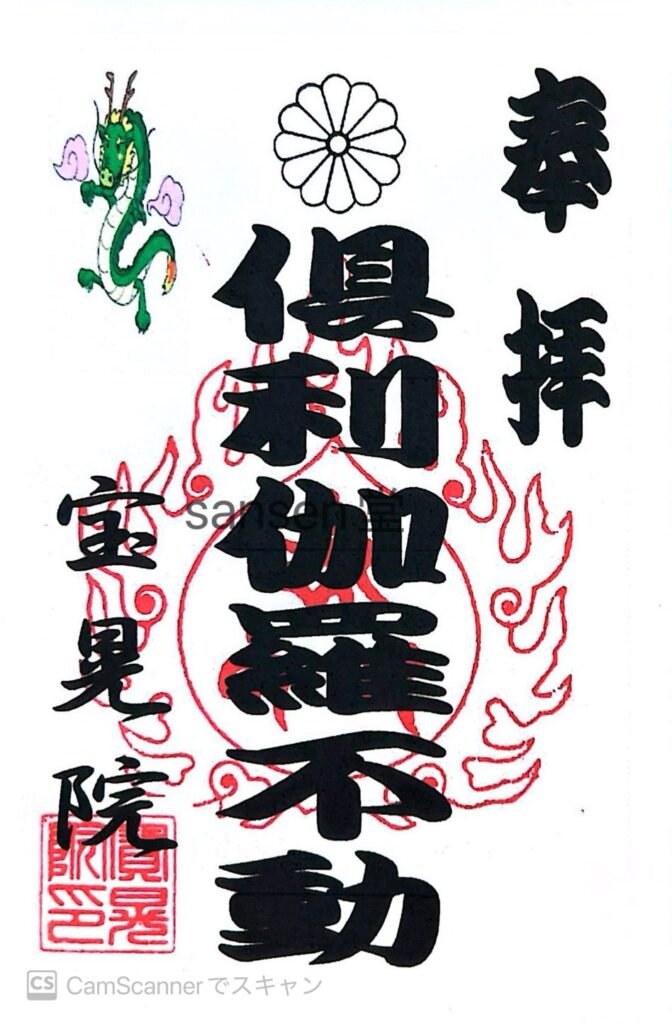 奉拝
俱利伽羅不動
宝晃院
寶晃院印
sansen堂
CS CamScannerでスキャン